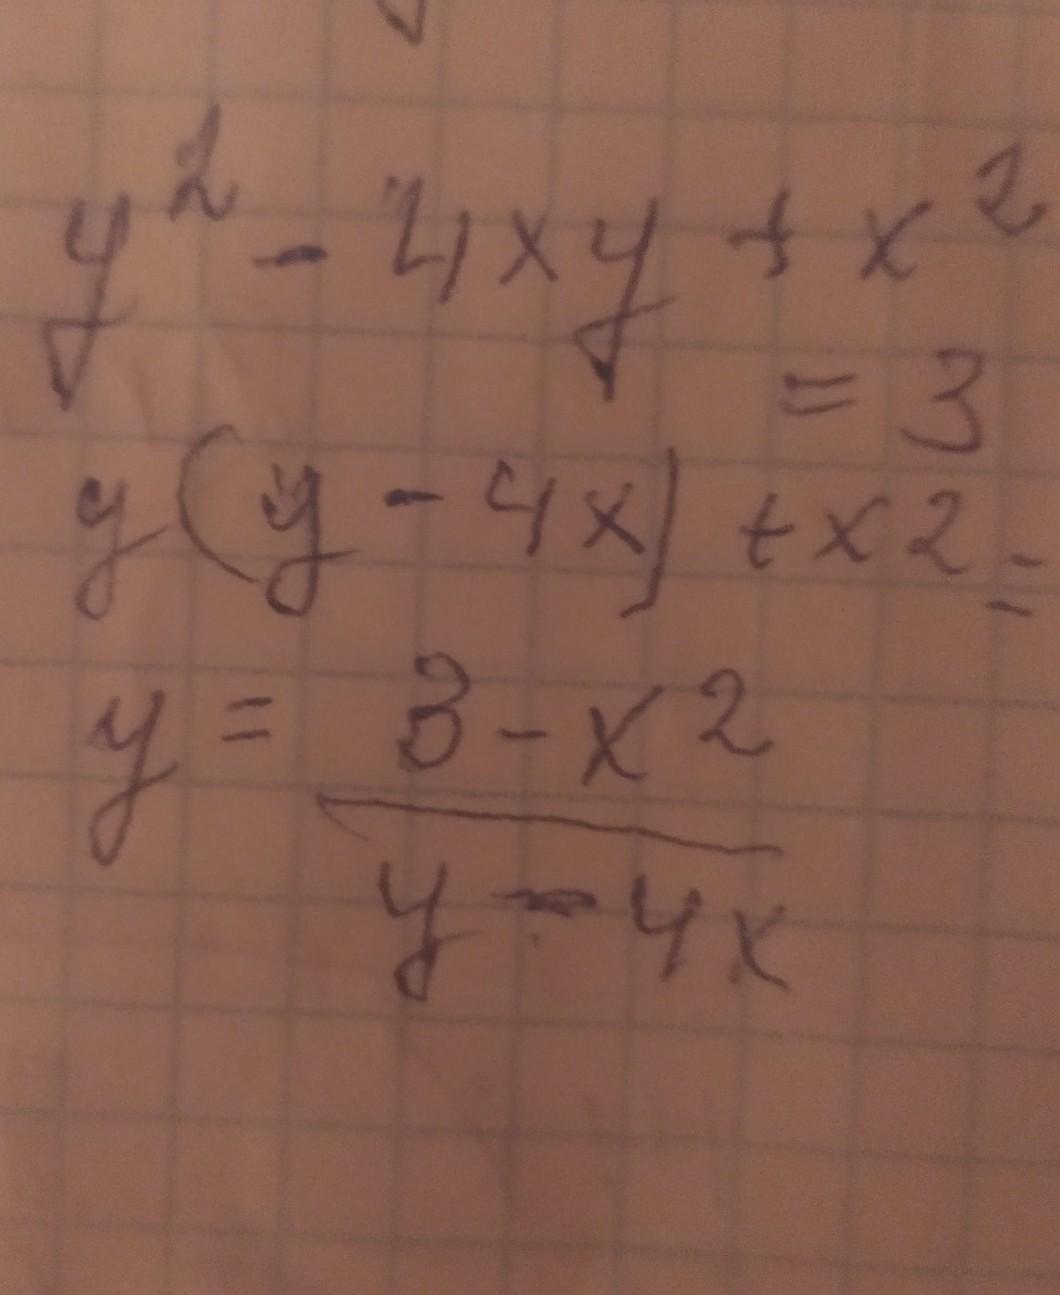 y² - 4xy + x²
= 3
y(y - 4x) + x2 =
y = 3 - x2
y - 4x